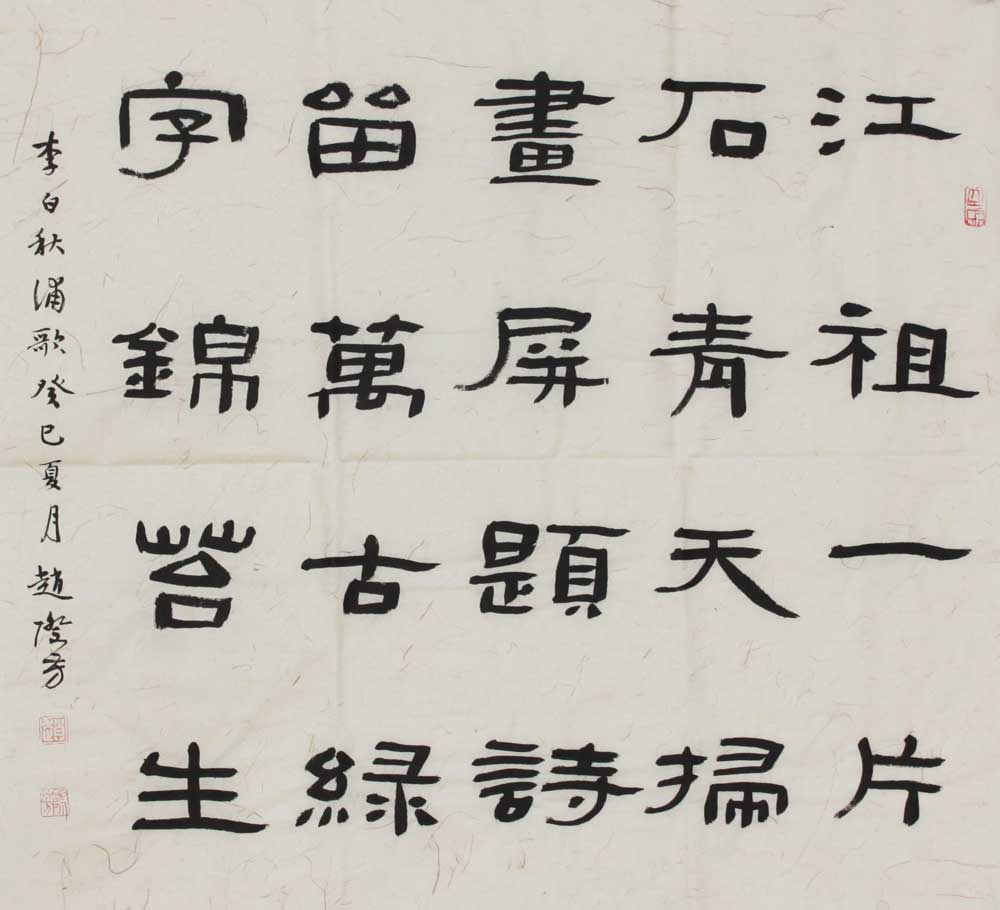 江祖一片
石青天掃
畫屏題詩
留萬古綠
字錦苔生
李白秋浦歌癸巳夏月趙芳